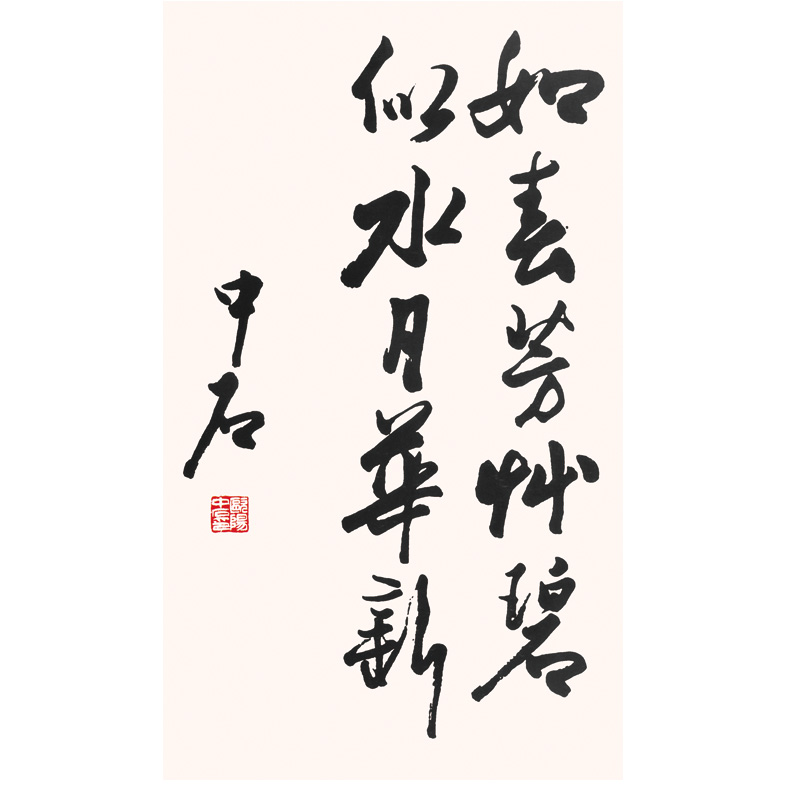 如春芳艸碧
似水月華新
中石
歐陽
中石章